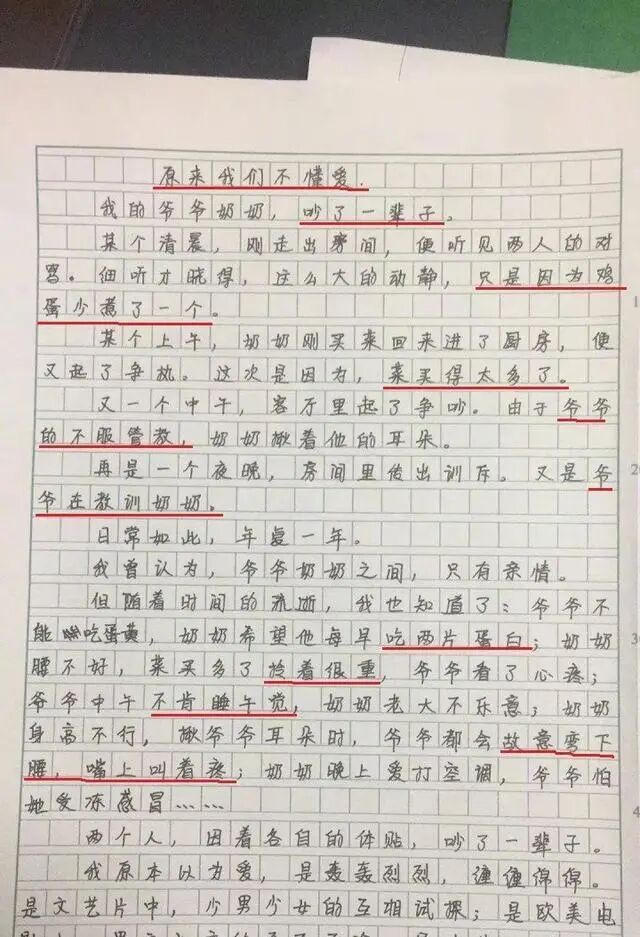 原来我们不懂爱.
我的爷爷奶奶，吵了一辈子。
某个清晨，刚走出房间，便听见两人的对
骂。细听才晓得，这么大的动静，只是因为鸡
蛋少煮了一个。
某个上午，奶奶刚买来回来进了厨房，便
又起了争执。这次是因为，菜买得太多了。
又一个中午，客厅里起了争吵。由于爷爷
的不服管教，奶奶揪着他的耳朵。
再是一个夜晚，房间里传出训斥。又是爷
爷在教训奶奶。
日常如此，年复一年。
我曾认为，爷爷奶奶之间，只有亲情。
但随着时间的流逝，我也知道了：爷爷不
能吃蛋黄，奶奶希望他每早吃两片蛋白；奶奶
腰不好，菜买多了拎着很重，爷爷看了心疼；
爷爷中午不肯睡午觉，奶奶老大不乐意；奶奶
身高不行，揪爷爷耳朵时，爷爷都会故意弯下
腰，嘴上叫着疼；奶奶晚上爱打空调，爷爷怕
她受冻感冒……
两个人，因着各自的体贴，吵了一辈子。
我原本以为爱，是轰轰烈烈，缠缠绵绵。
是文艺片中，少男少女的互相试探；是欧美电
1